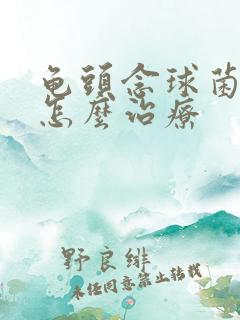 龟頭念球菌
怎麼治療
野良緋
未经同意禁止转载